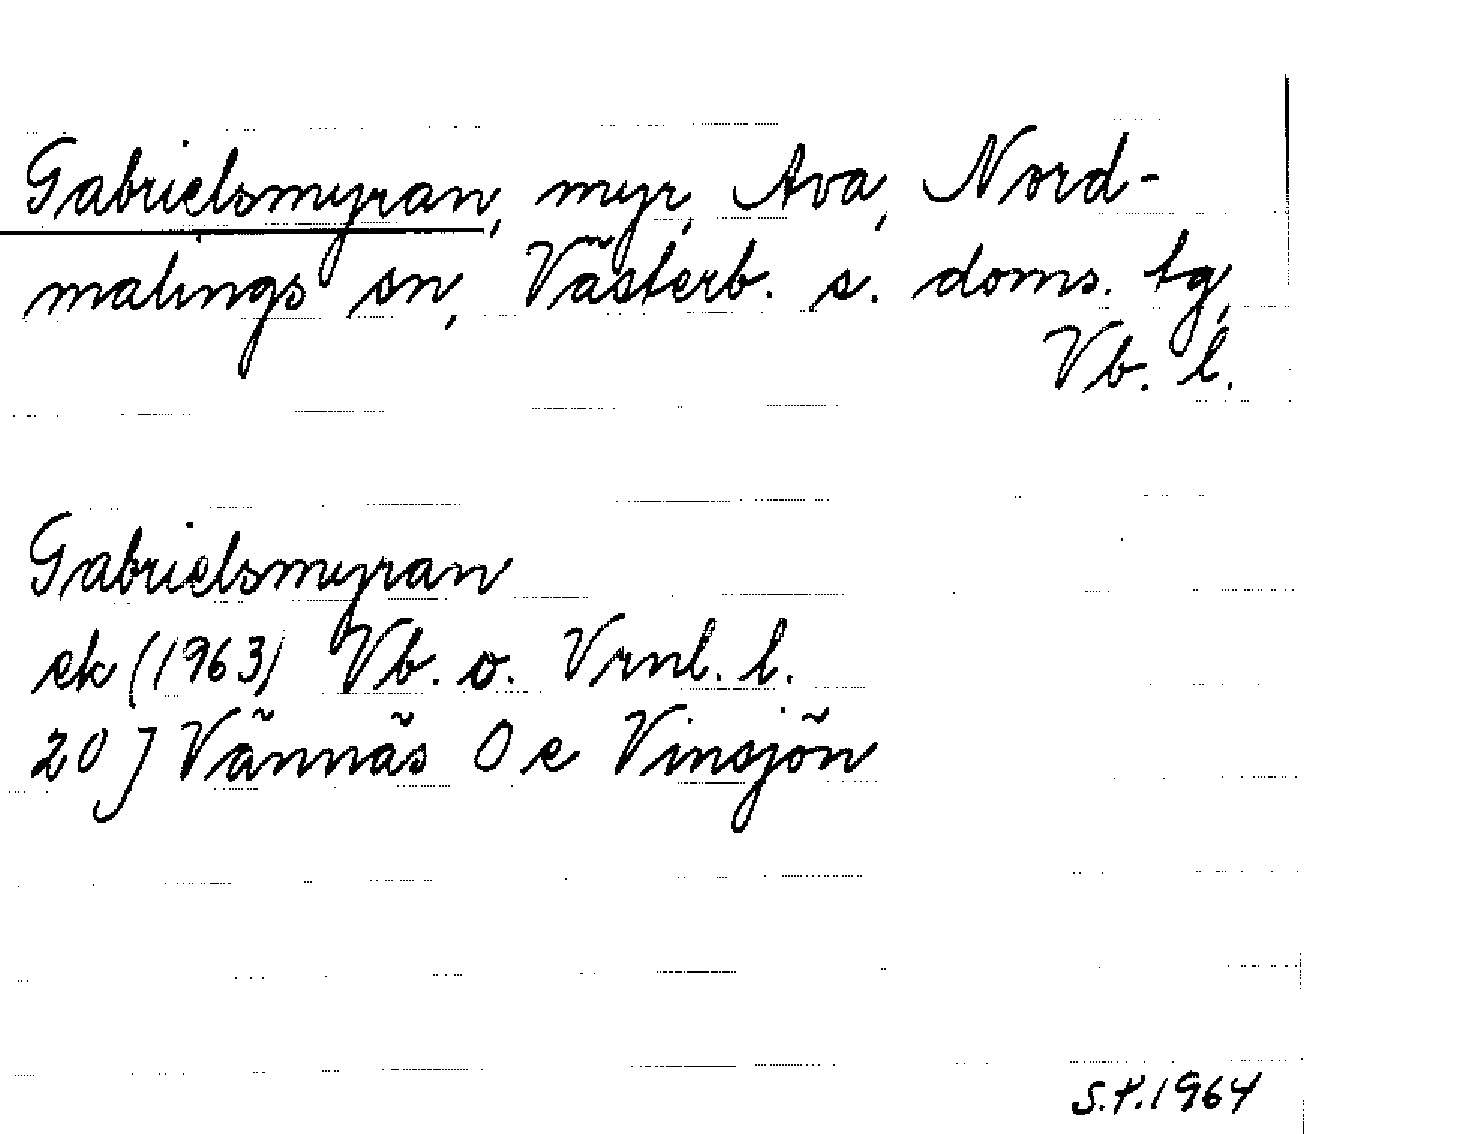 Gabrielsmyran, myr, Ava, Nord-
malings sn, Västerb. s. doms. tg,
Vb. l.
Gabrielsmyran
ek (1963) Vb. o. Vrnl. l.
20 J Vännäs 0 e Vinsjön
S.P.1964